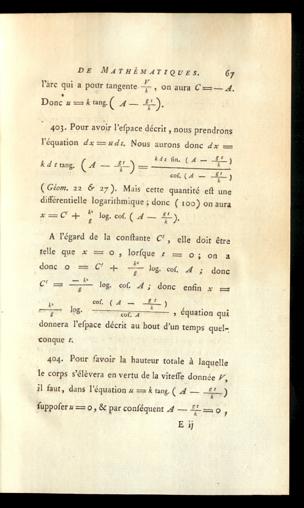 DE MATHÉMATIQUES. 67
l'arc qui a pour tangente V/k, on aura C = — A.
Donc u = k tang. ( A — gt/k ).
403. Pour avoir l'eſpace décrit, nous prendrons
l'équation dx = udt. Nous aurons donc dx =
k dt tang. ( A — gt/k ) = k dt ſin. ( A — gt/k ) / coſ. ( A — gt/k )
(Géom. 22 & 27). Mais cette quantité eſt une
différentielle logarithmique ; donc (100) on aura
x = C' + k²/g log. coſ. ( A — gt/k ).
A l'égard de la conſtante C', elle doit être
telle que x = 0, lorſque t = 0 ; on a
donc 0 = C' + k²/g log. coſ. A ; donc
C' = — k²/g log. coſ. A ; donc enfin x =
k²/g log. coſ. ( A — gt/k ) / coſ. A , équation qui
donnera l'eſpace décrit au bout d'un temps quel-
conque t.
404. Pour ſavoir la hauteur totale à laquelle
le corps s'élèvera en vertu de la vîteſſe donnée V,
il faut, dans l'équation u = k tang. ( A — gt/k )
ſuppoſer u = 0, & par conſéquent A — gt/k = 0,
E ij